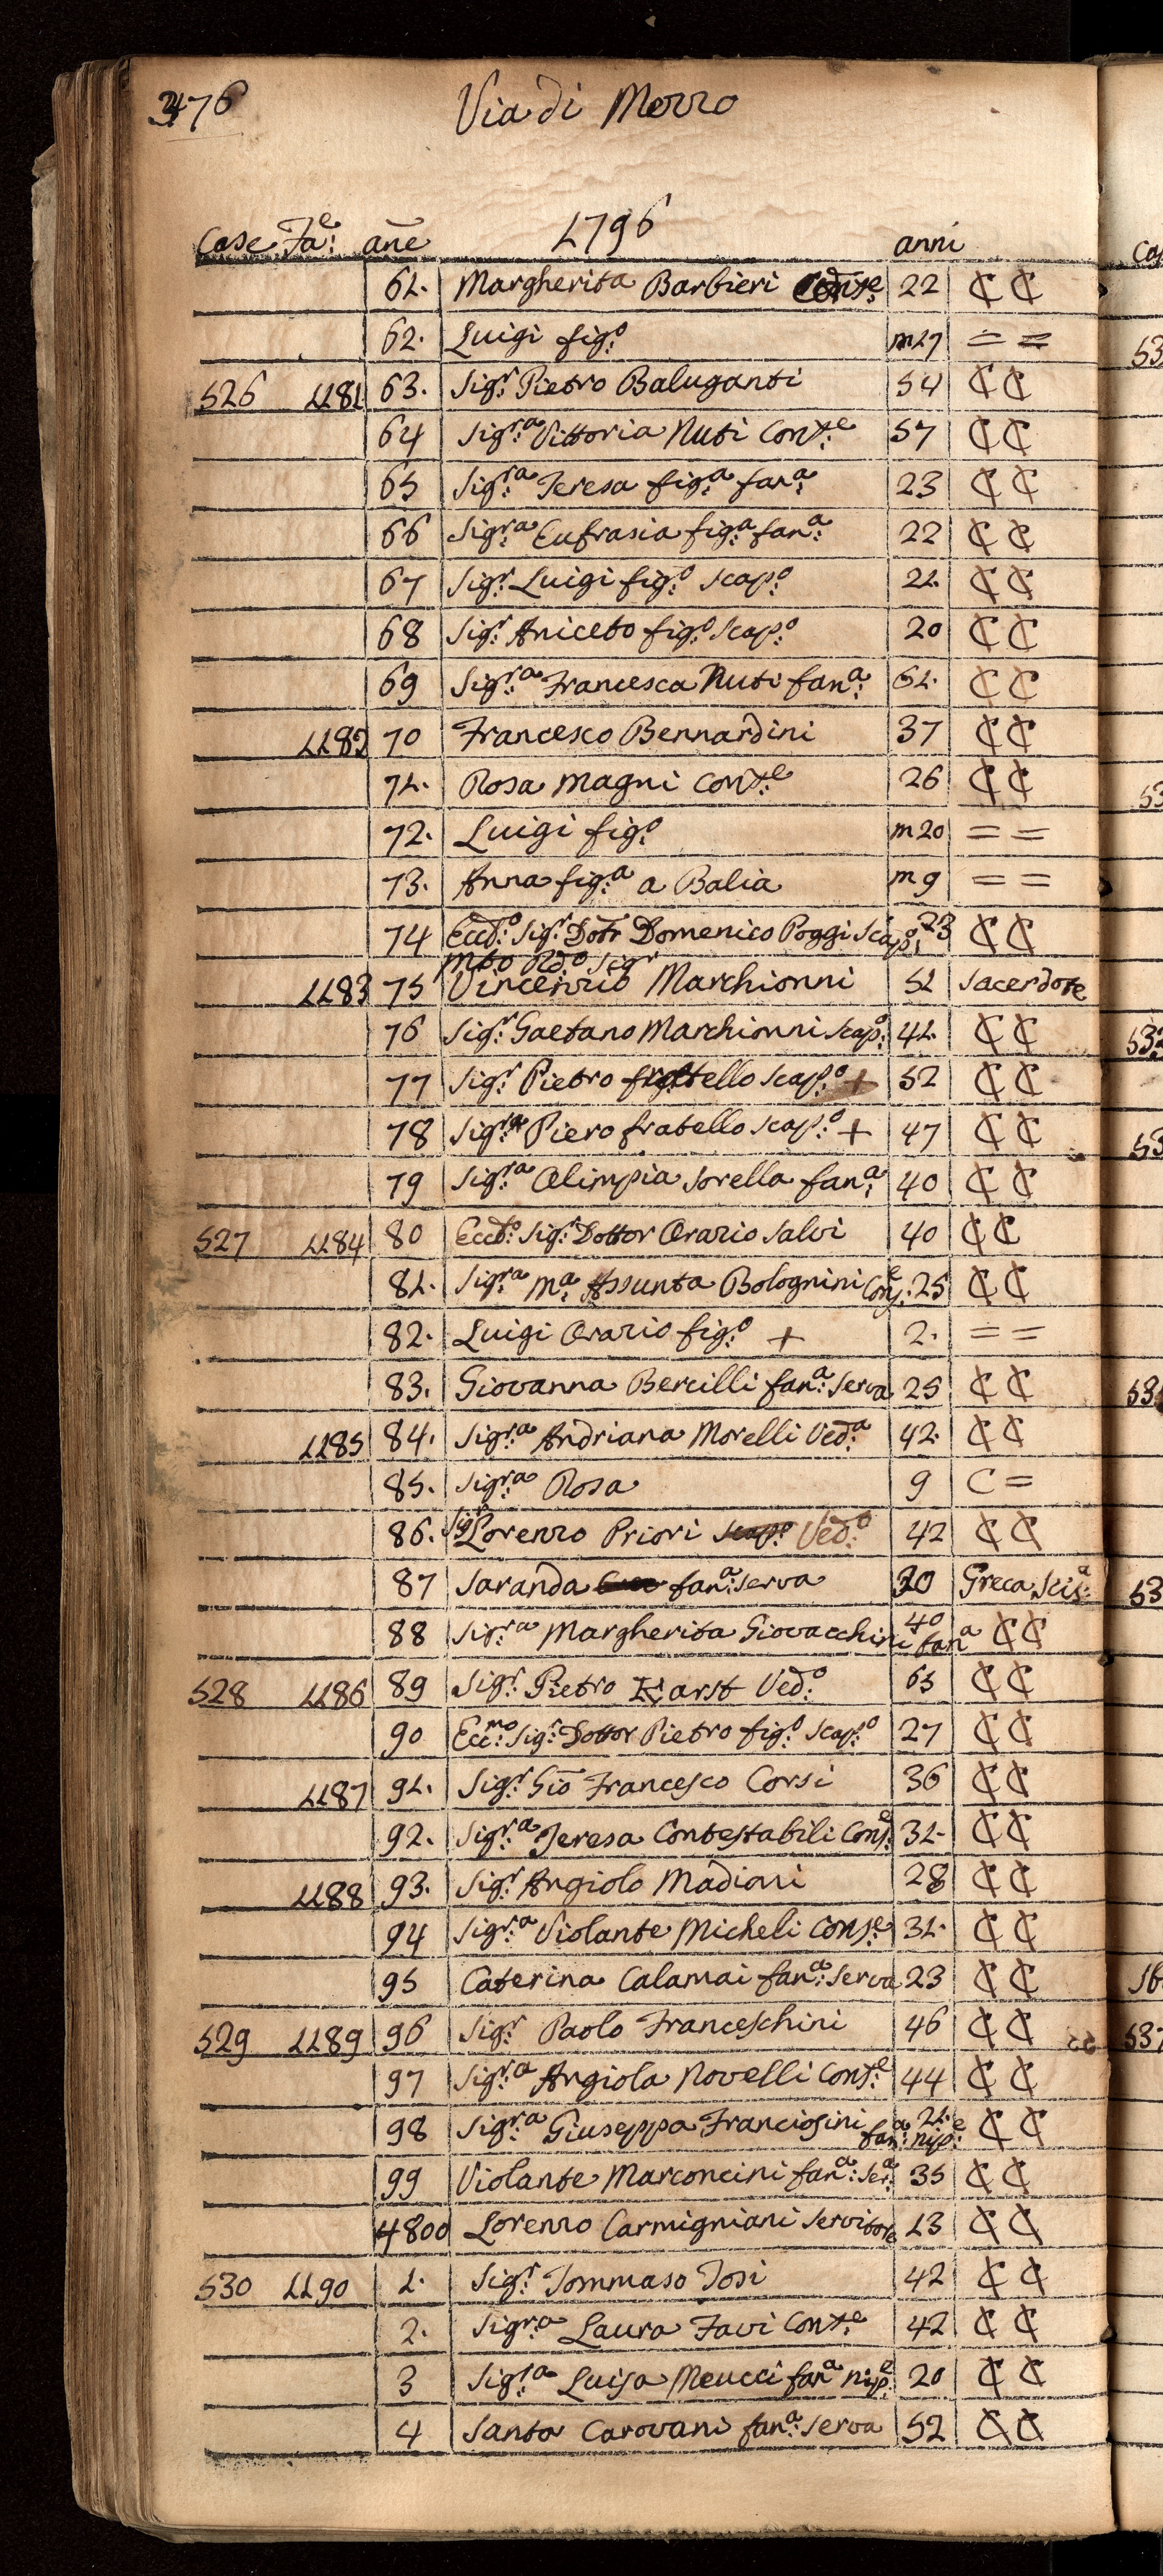 476 Via di Mezzo
Case Fa:e añe 1796 anni
61. Margherita Barbieri Conse: 22 C C
62. Luigi fig:o m27 = =
526 1181 63. Sig:r Pietro Baluganti 54 C C
64 Sig:ra Vittoria Nuti Cont:e 57 C C
65 Sig:ra Teresa fig:a fan:a 23 C C
66 Sig:ra Eufrasia fig:a fan:a 22 C C
67 Sig:r Luigi fig:o scap:o 21. C C
68 Sig:r Aniceto fig:o scap:o 20 C C
69 Sig:ra Francesca Nuti fan:a 61. C C
1182 70 Francesco Bennardini 37 C C
71. Rosa Magni Cont:e 26 C C
72. Luigi fig:o m20 = =
73. Anna fig:a a Balia m9 = =
74 Ecc:o Sig:r Dott:r Domenico Poggi Scap:o 23 C C
Mto Rd:o Sigr
1183 75 Vincenzio Marchionni 51 Sacerdote
76 Sig:r Gaetano Marchionni scap:o 41. C C
77 Sig:r Pietro fratello scap:o + 52 C C
78 Sig:r Piero fratello scap:o + 47 C C
79 Sig:ra Olimpia sorella fan:a 40 C C
527 1184 80 Ecc:o Sig:r Dottor Orazio Salvi 40 C C
81. Sig:ra M:a Assunta Bolognini Cons:e 25 C C
82. Luigi Orazio fig:o + 2. = =
83. Giovanna Bercilli fan:a serva 25 C C
1185 84. Sig:ra Andriana Morelli Ved:a 42. C C
85. Sig:ra Rosa 9 C =
86. Sigr Lorenzo Priori scap:o Ved:o 42 C C
87 Saranda fan:a serva 30 Greca Scis:a
88 Sig:ra Margherita Giovacchini fan:a 40 C C
528 1186 89 Sig:r Pietro Karst Ved:o 65 C C
90 Ecc:mo Sig:r Dottor Pietro fig:o scap:o 27 C C
1187 91. Sig:r Gio Francesco Corsi 36 C C
92. Sig:ra Teresa Contestabili Cons:e 31. C C
1188 93. Sig:r Angiolo Madioni 28 C C
94 Sig:ra Violante Micheli Cons:e 31. C C
95 Caterina Calamai fan:a serva 23 C C
529 1189 96 Sig:r Paolo Franceschini 46 C C
97 Sig:ra Angiola Novelli Cont:e 44 C C
98 Sig:ra Giuseppa Franciosini fan:a nip:e 21. C C
99 Violante Marconcini fan:a ser:a 35 C C
4800 Lorenzo Carmigniani servitore 13 C C
530 1190 1. Sig:r Tommaso Tosi 42 C C
2. Sigra Laura Favi Cont:e 42 C C
3 Sig:ra Luisa Meucci fan:a nip:e 20 C C
4 Santa Carovani fan:a serva 52 C C